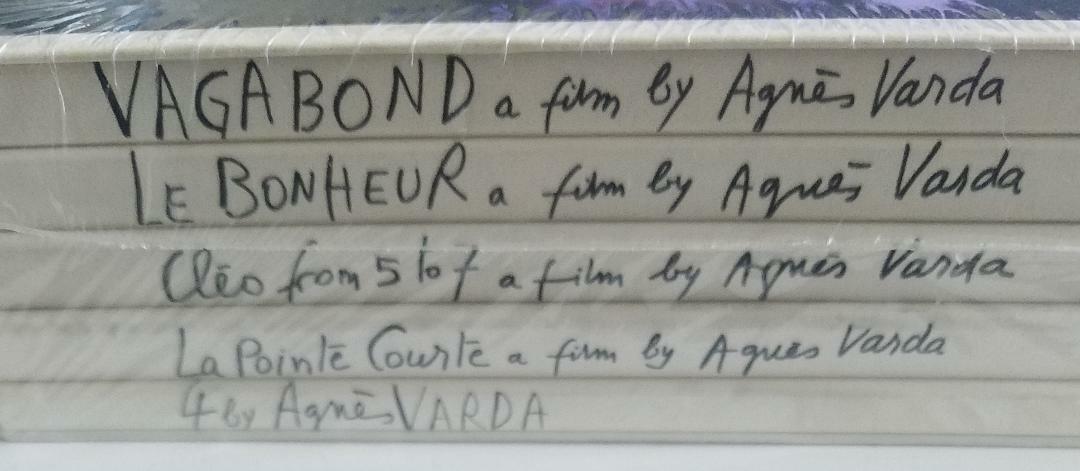 VAGABOND a film by Agnès Varda
LE BONHEUR a film by Agnès Varda
Cléo from 5 to 7 a film by Agnès Varda
La Pointe Courte a film by Agnes Varda
4 by Agnès VARDA